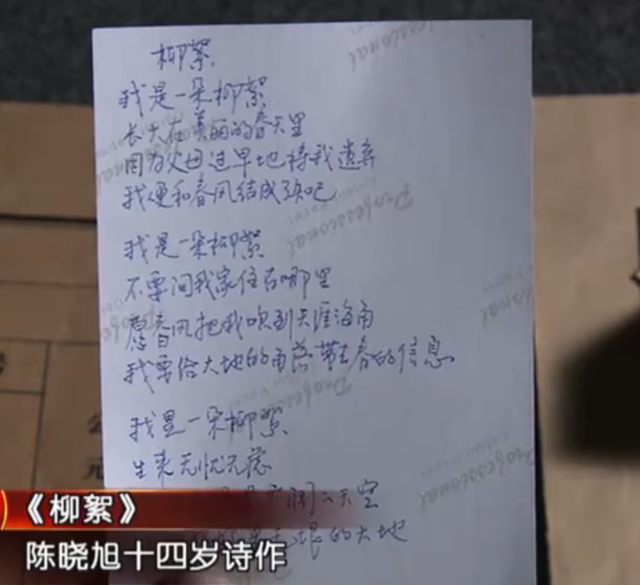 柳絮
我是一朵柳絮
长大在美丽的春天里
因为父母过早地将我遗弃
我便和春风结成
我是一朵柳絮
不要问我家住在哪里
愿春风把我吹到天涯海角
我要给大地的角落带去春的信息
我是一朵柳絮
生来无忧无虑
天空
的大地
《柳絮》
陈晓旭十四岁诗作
Professional